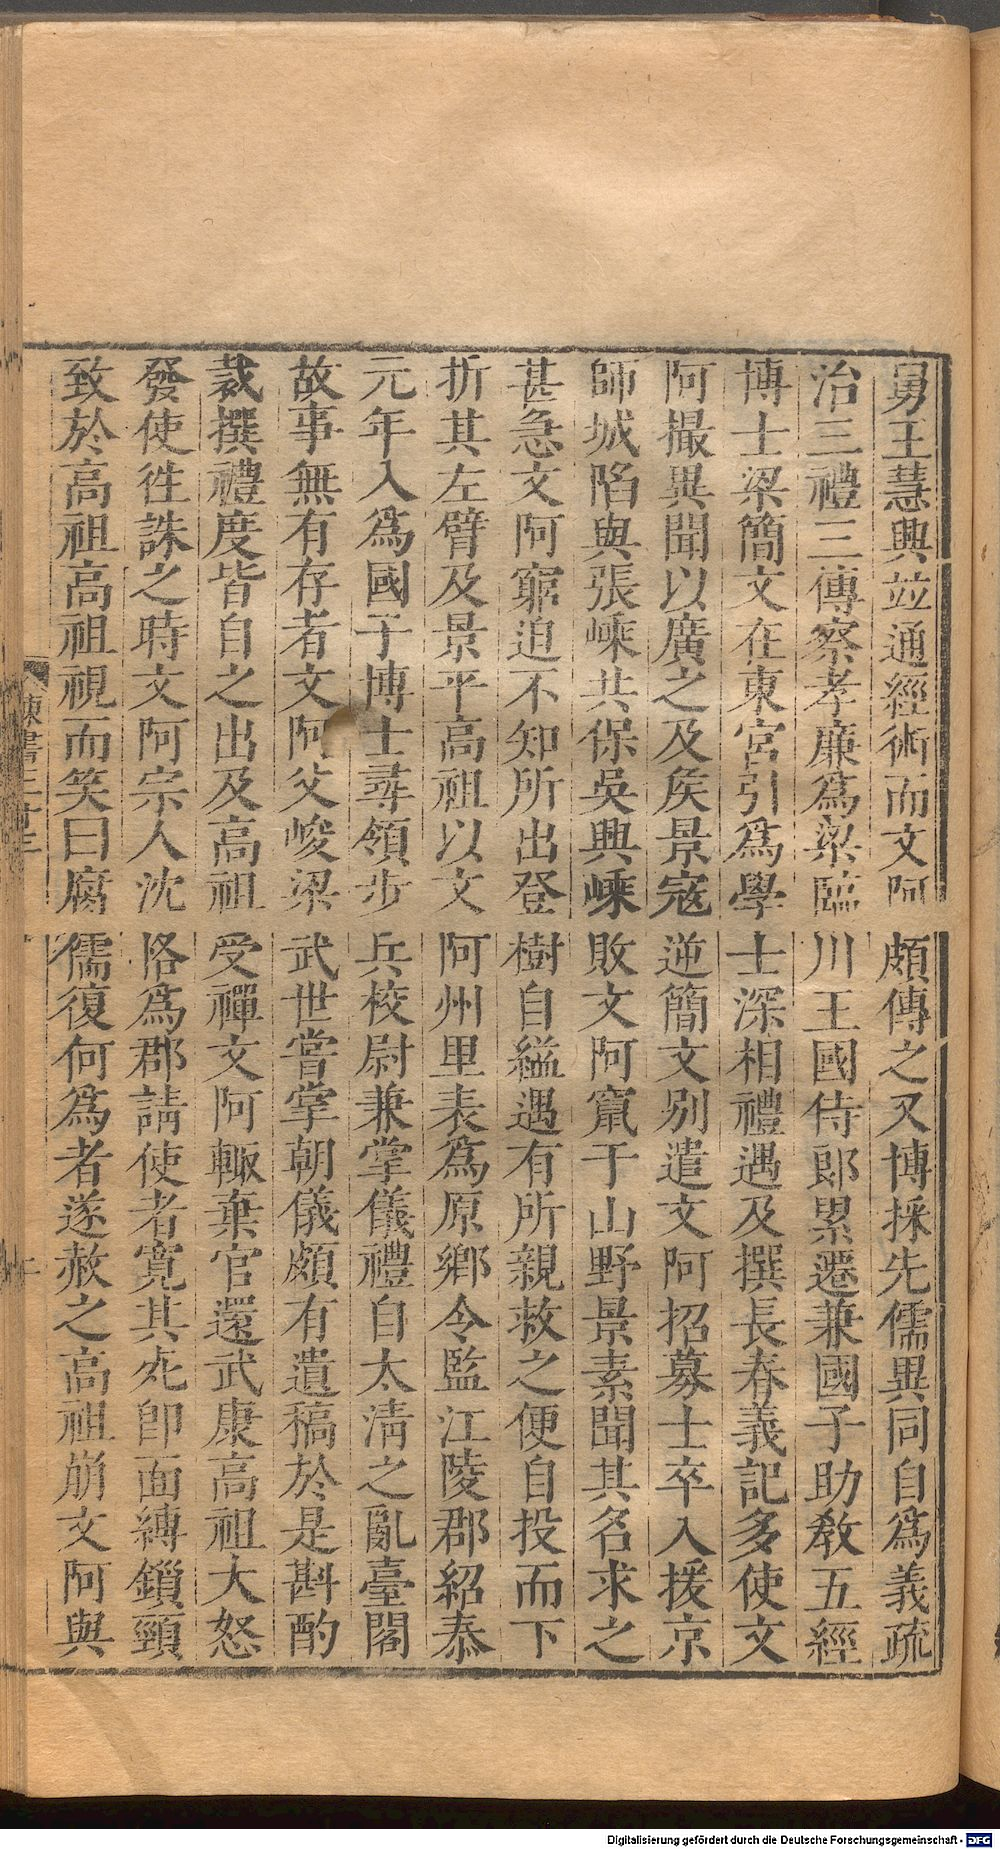 舅王慧興並通經術而文阿頗傳之又博採先儒異同自爲義疏
治三禮三傳察孝廉爲梁臨川王國侍郎累遷兼國子助教五經
博士梁簡文在東宮引爲學士深相禮遇及撰長春義記多使文
阿撮異聞以廣之及矦景寇逆簡文別遣文阿招募士卒入援京
師城陷與張嵊共保吳興嵊敗文阿竄于山野景素聞其名求之
甚急文阿窮迫不知所出登樹自縊遇有所親救之便自投而下
折其左臂及景平高祖以文阿州里表爲原鄉令監江陵郡紹泰
元年入爲國子博士尋領步兵校尉兼掌儀禮自太淸之亂臺閣
故事無有存者文阿父峻梁武世嘗掌朝儀頗有遺稿於是斟酌
裁撰禮度皆自之出及高祖受禪文阿輙棄官還武康高祖大怒
發使徃誅之時文阿宗人沈恪爲郡請使者寛其死卽面縛鎖頸
致於高祖高祖視而笑曰腐儒復何爲者遂赦之高祖崩文阿與
陳書三十三
Digitalisierung gefördert durch die Deutsche Forschungsgemeinschaft - DFG